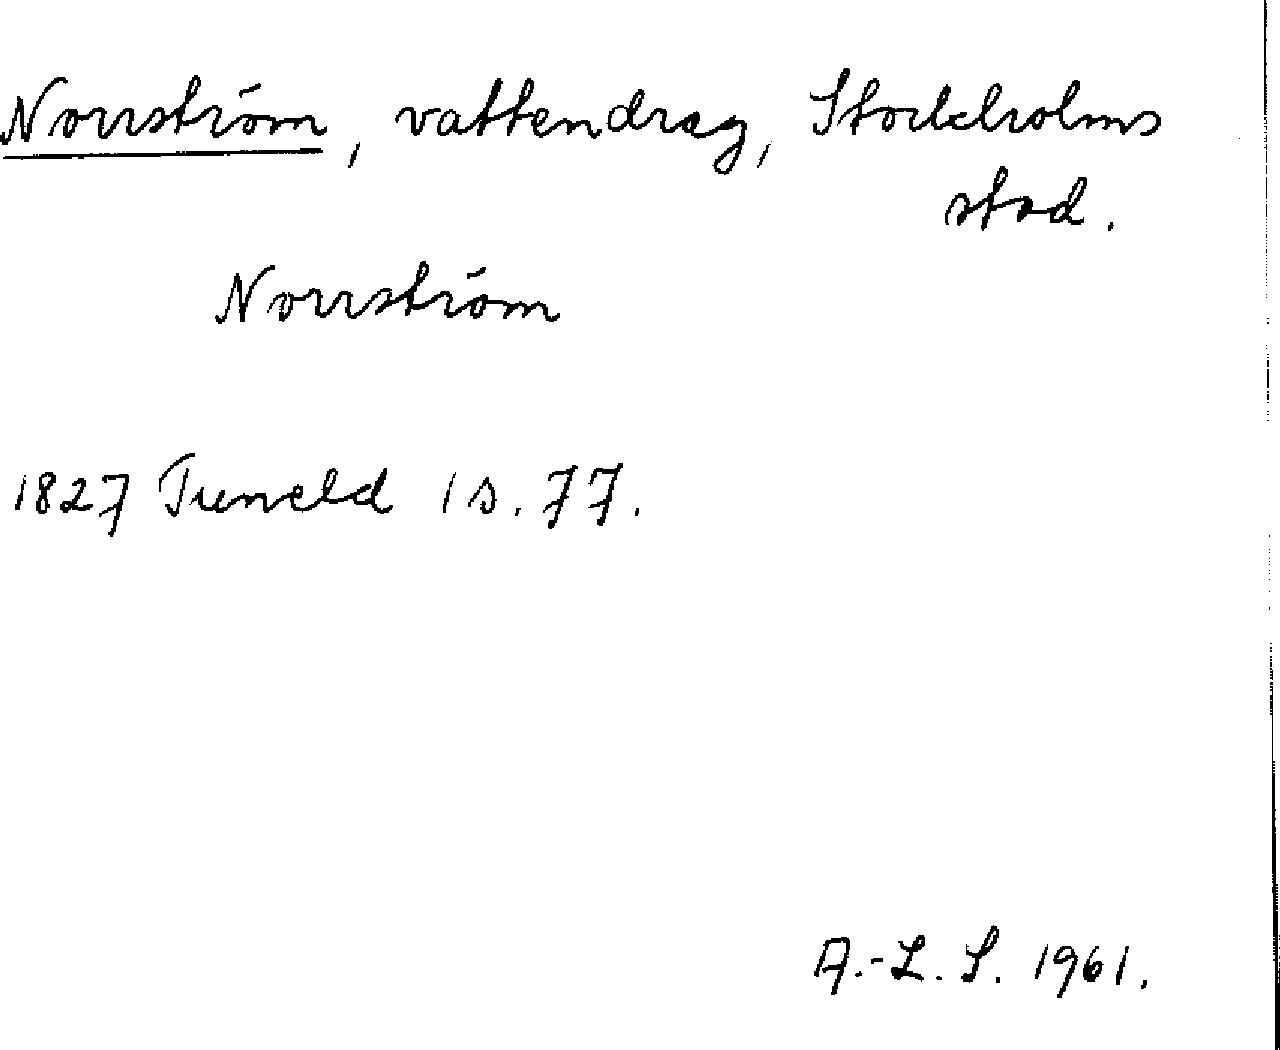 Norrström, vattendrag, Stockholms
stad.
Norrström
1827 Tuneld 1 s. 77.
A.-L. S. 1961.